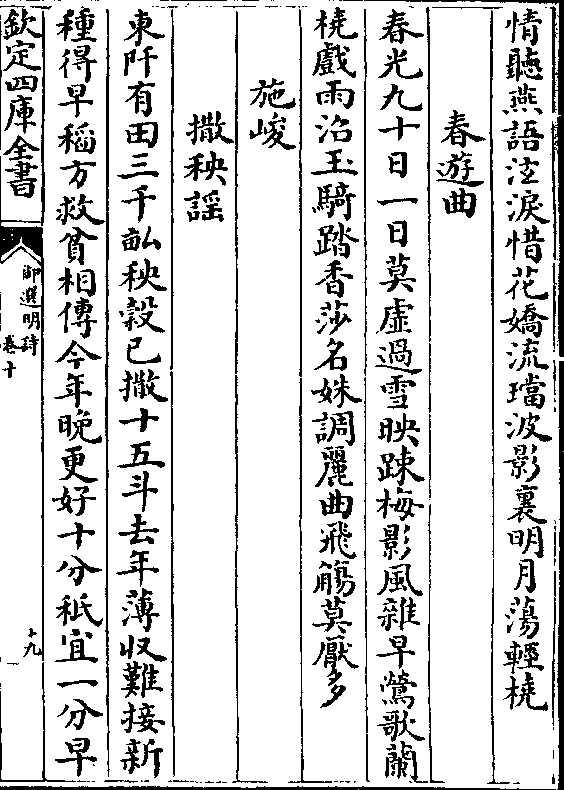 情聽燕語泫淚惜花嬌流璫波影裏明月蕩輕橈
春遊曲
春光九十日一日莫虛過雪映踈梅影風雜早鶯歌蘭
橈戲雨沿玉騎踏香莎名姝調麗曲飛觴莫厭多
施峻
撒秧謡
東阡有田三千畝秧穀已撒十五斗去年薄収難接新
種得早稻方救貧相傳今年晚更好十分秪宜一分早
欽定四庫全書
御選明詩
卷十
十九